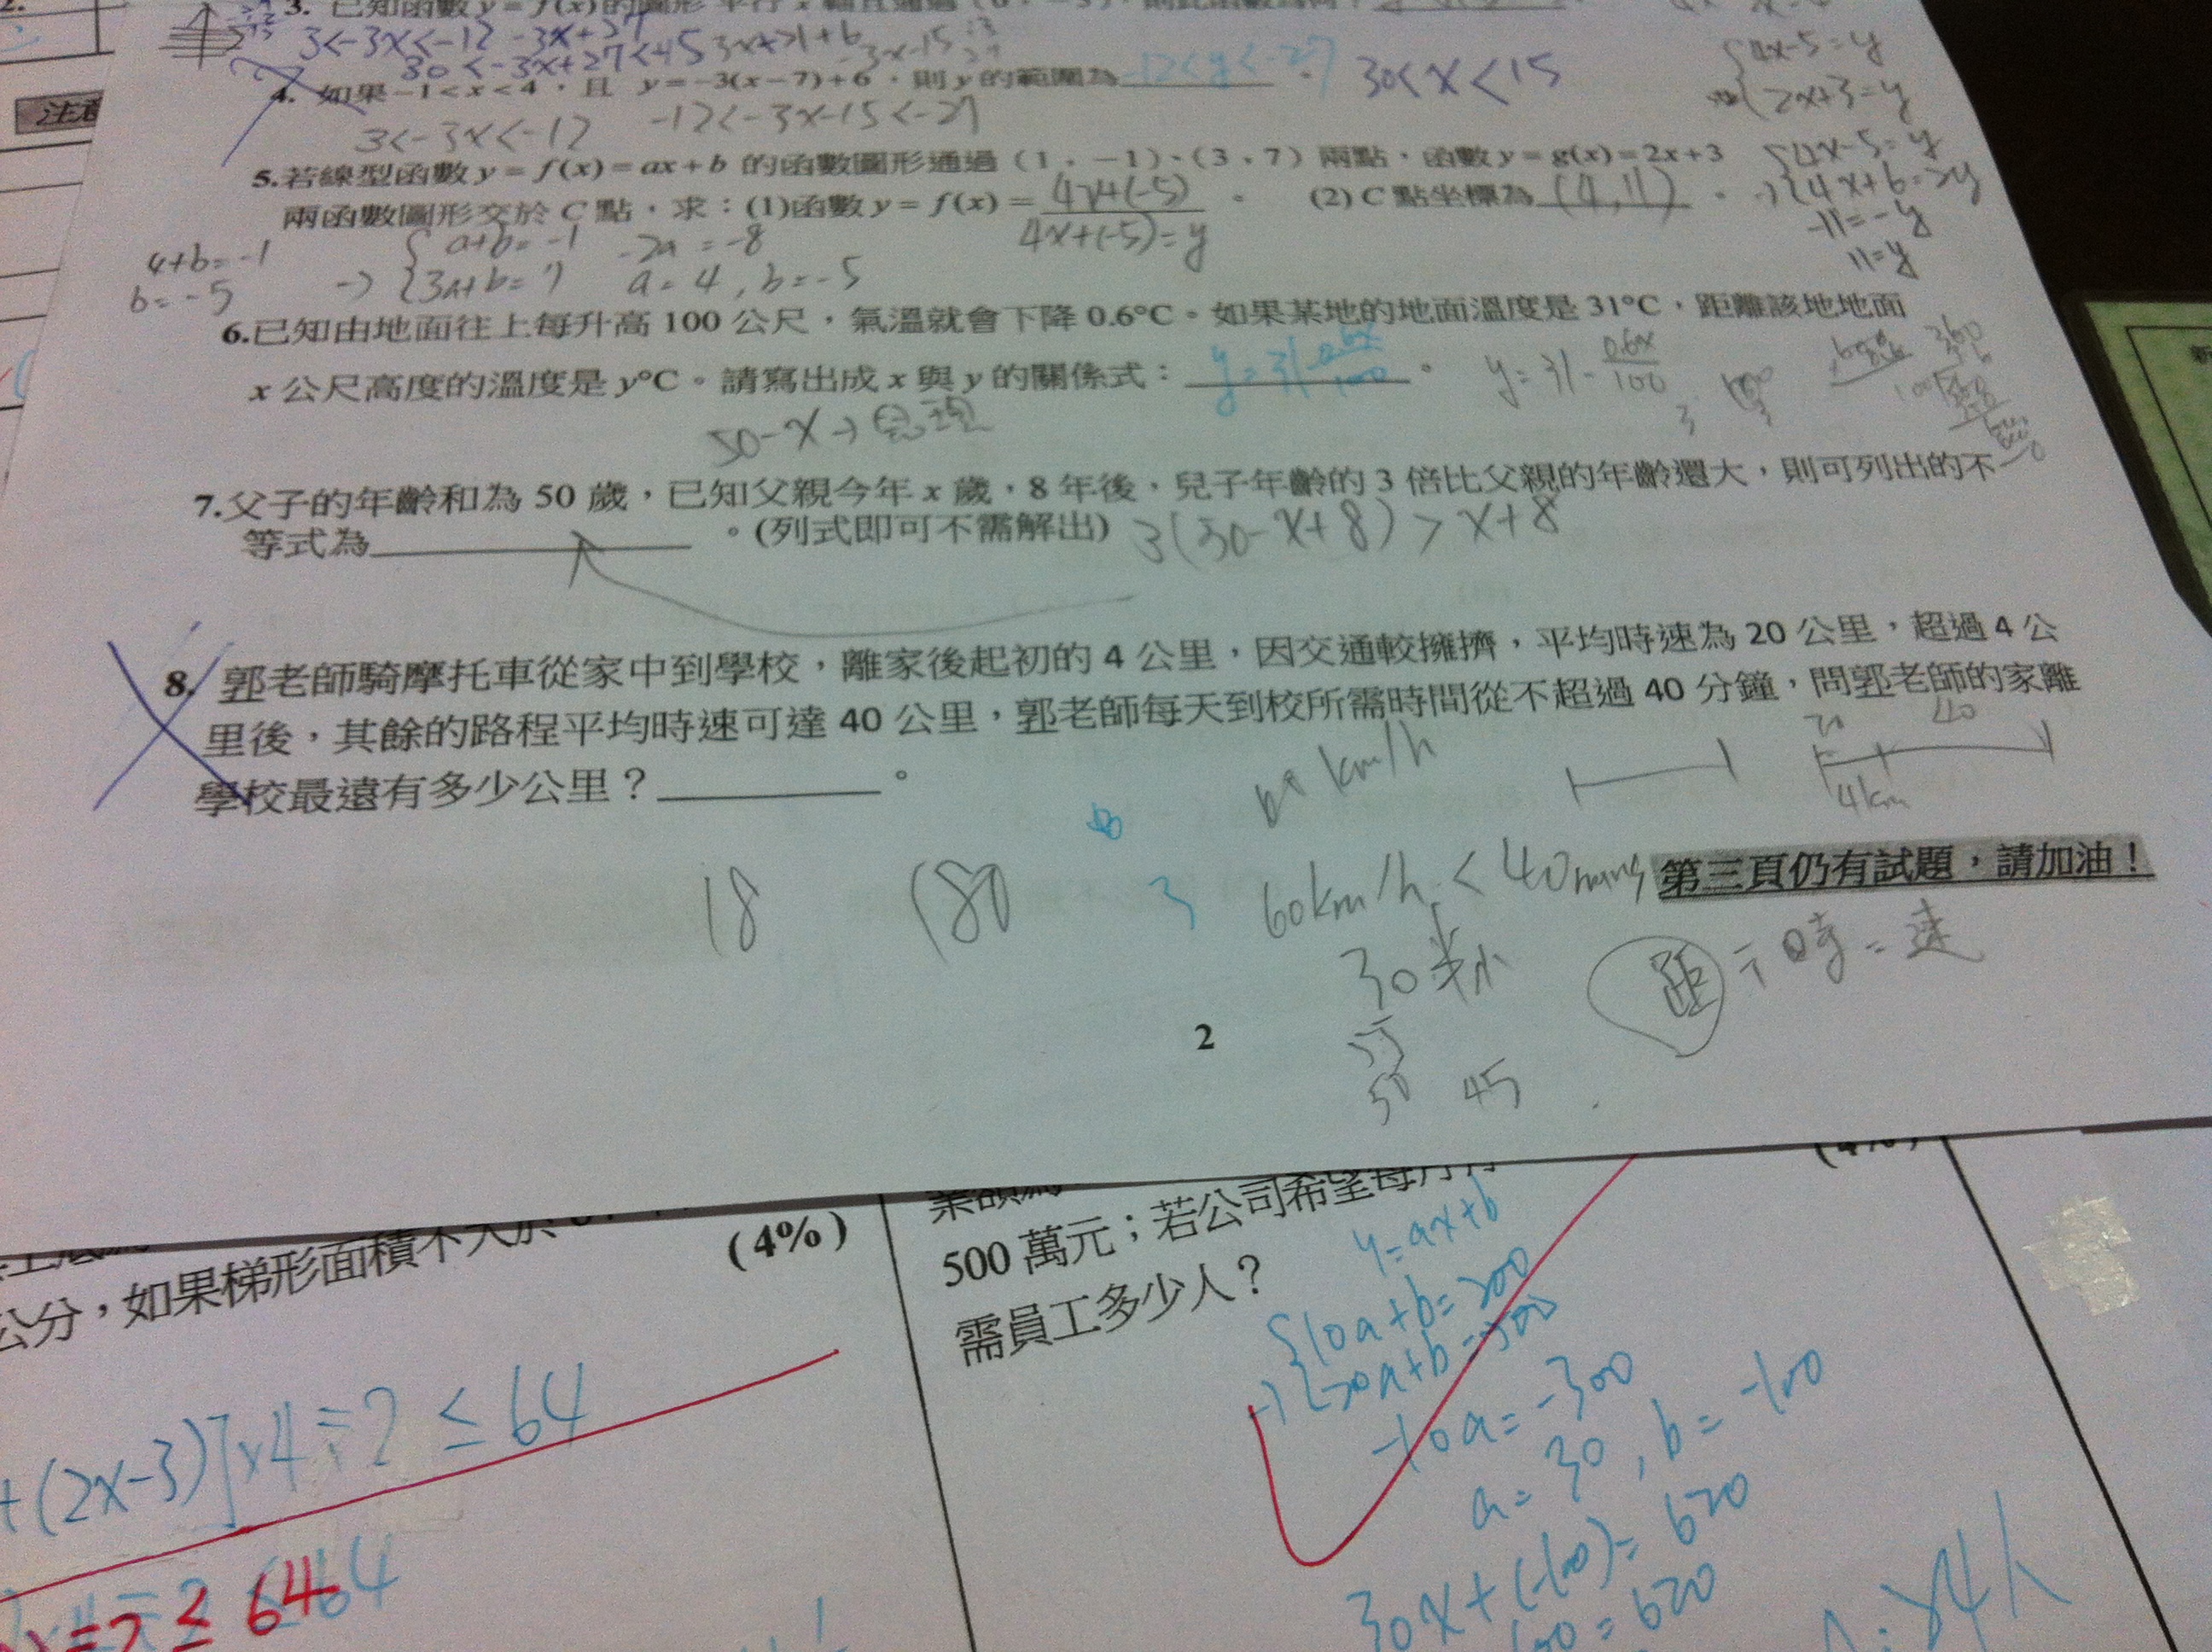 3. 已知函數 y = f(x) 的圖形
3<-3x<-12 -3x+27
30<-3x+27<+15
4. 如果 -1 < x < 4，且 y = -3(x-7)+6，則 y 的範圍為 -12<y<-27。 30<x<15
3<-3x<-12 -12<-3x-15<-27
{4x-5=y
{2x+3=y
5.若線型函數 y = f(x) = ax + b 的函數圖形通過（1，-1）、（3，7）兩點，函數 y = g(x) = 2x + 3
兩函數圖形交於 C 點，求：(1)函數 y = f(x) = 4x+(-5)。 (2) C 點坐標為 (4,11)。
{4x-5=y
→{4x+6=2y
-11=-y
11=y
4+b=-1
b=-5
{a+b=-1 -2a=-8
→{3a+b=7 a=4, b=-5
4x+(-5)=y
6.已知由地面往上每升高 100 公尺，氣溫就會下降 0.6°C。如果某地的地面溫度是 31°C，距離該地地面
x 公尺高度的溫度是 y°C。請寫出成 x 與 y 的關係式：y=31-0.6x/100。 y=31-0.6x/100
50-x→兒
7.父子的年齡和為 50 歲，已知父親今年 x 歲，8 年後，兒子年齡的 3 倍比父親的年齡還大，則可列出的不
等式為 。(列式即可不需解出) 3(50-x+8)>x+8
8. 郭老師騎摩托車從家中到學校，離家後起初的 4 公里，因交通較擁擠，平均時速為 20 公里，超過 4 公
里後，其餘的路程平均時速可達 40 公里，郭老師每天到校所需時間從不超過 40 分鐘，問郭老師的家離
學校最遠有多少公里？ 。
km/h
20 40
4km
18 180 3 60km/h<40mins
第三頁仍有試題，請加油！
30
距÷時=速
2
50 45
(4%)
(4%)
公分，如果梯形面積不大於
+(2x-3)]×4÷2≤64
÷2≤64
500 萬元；若公司希望每月
需員工多少人？
y=ax+b
{10a+b=200
→{20a+b=500
-10a=-300
a=30, b=-100
30x+(-100)=620
=620